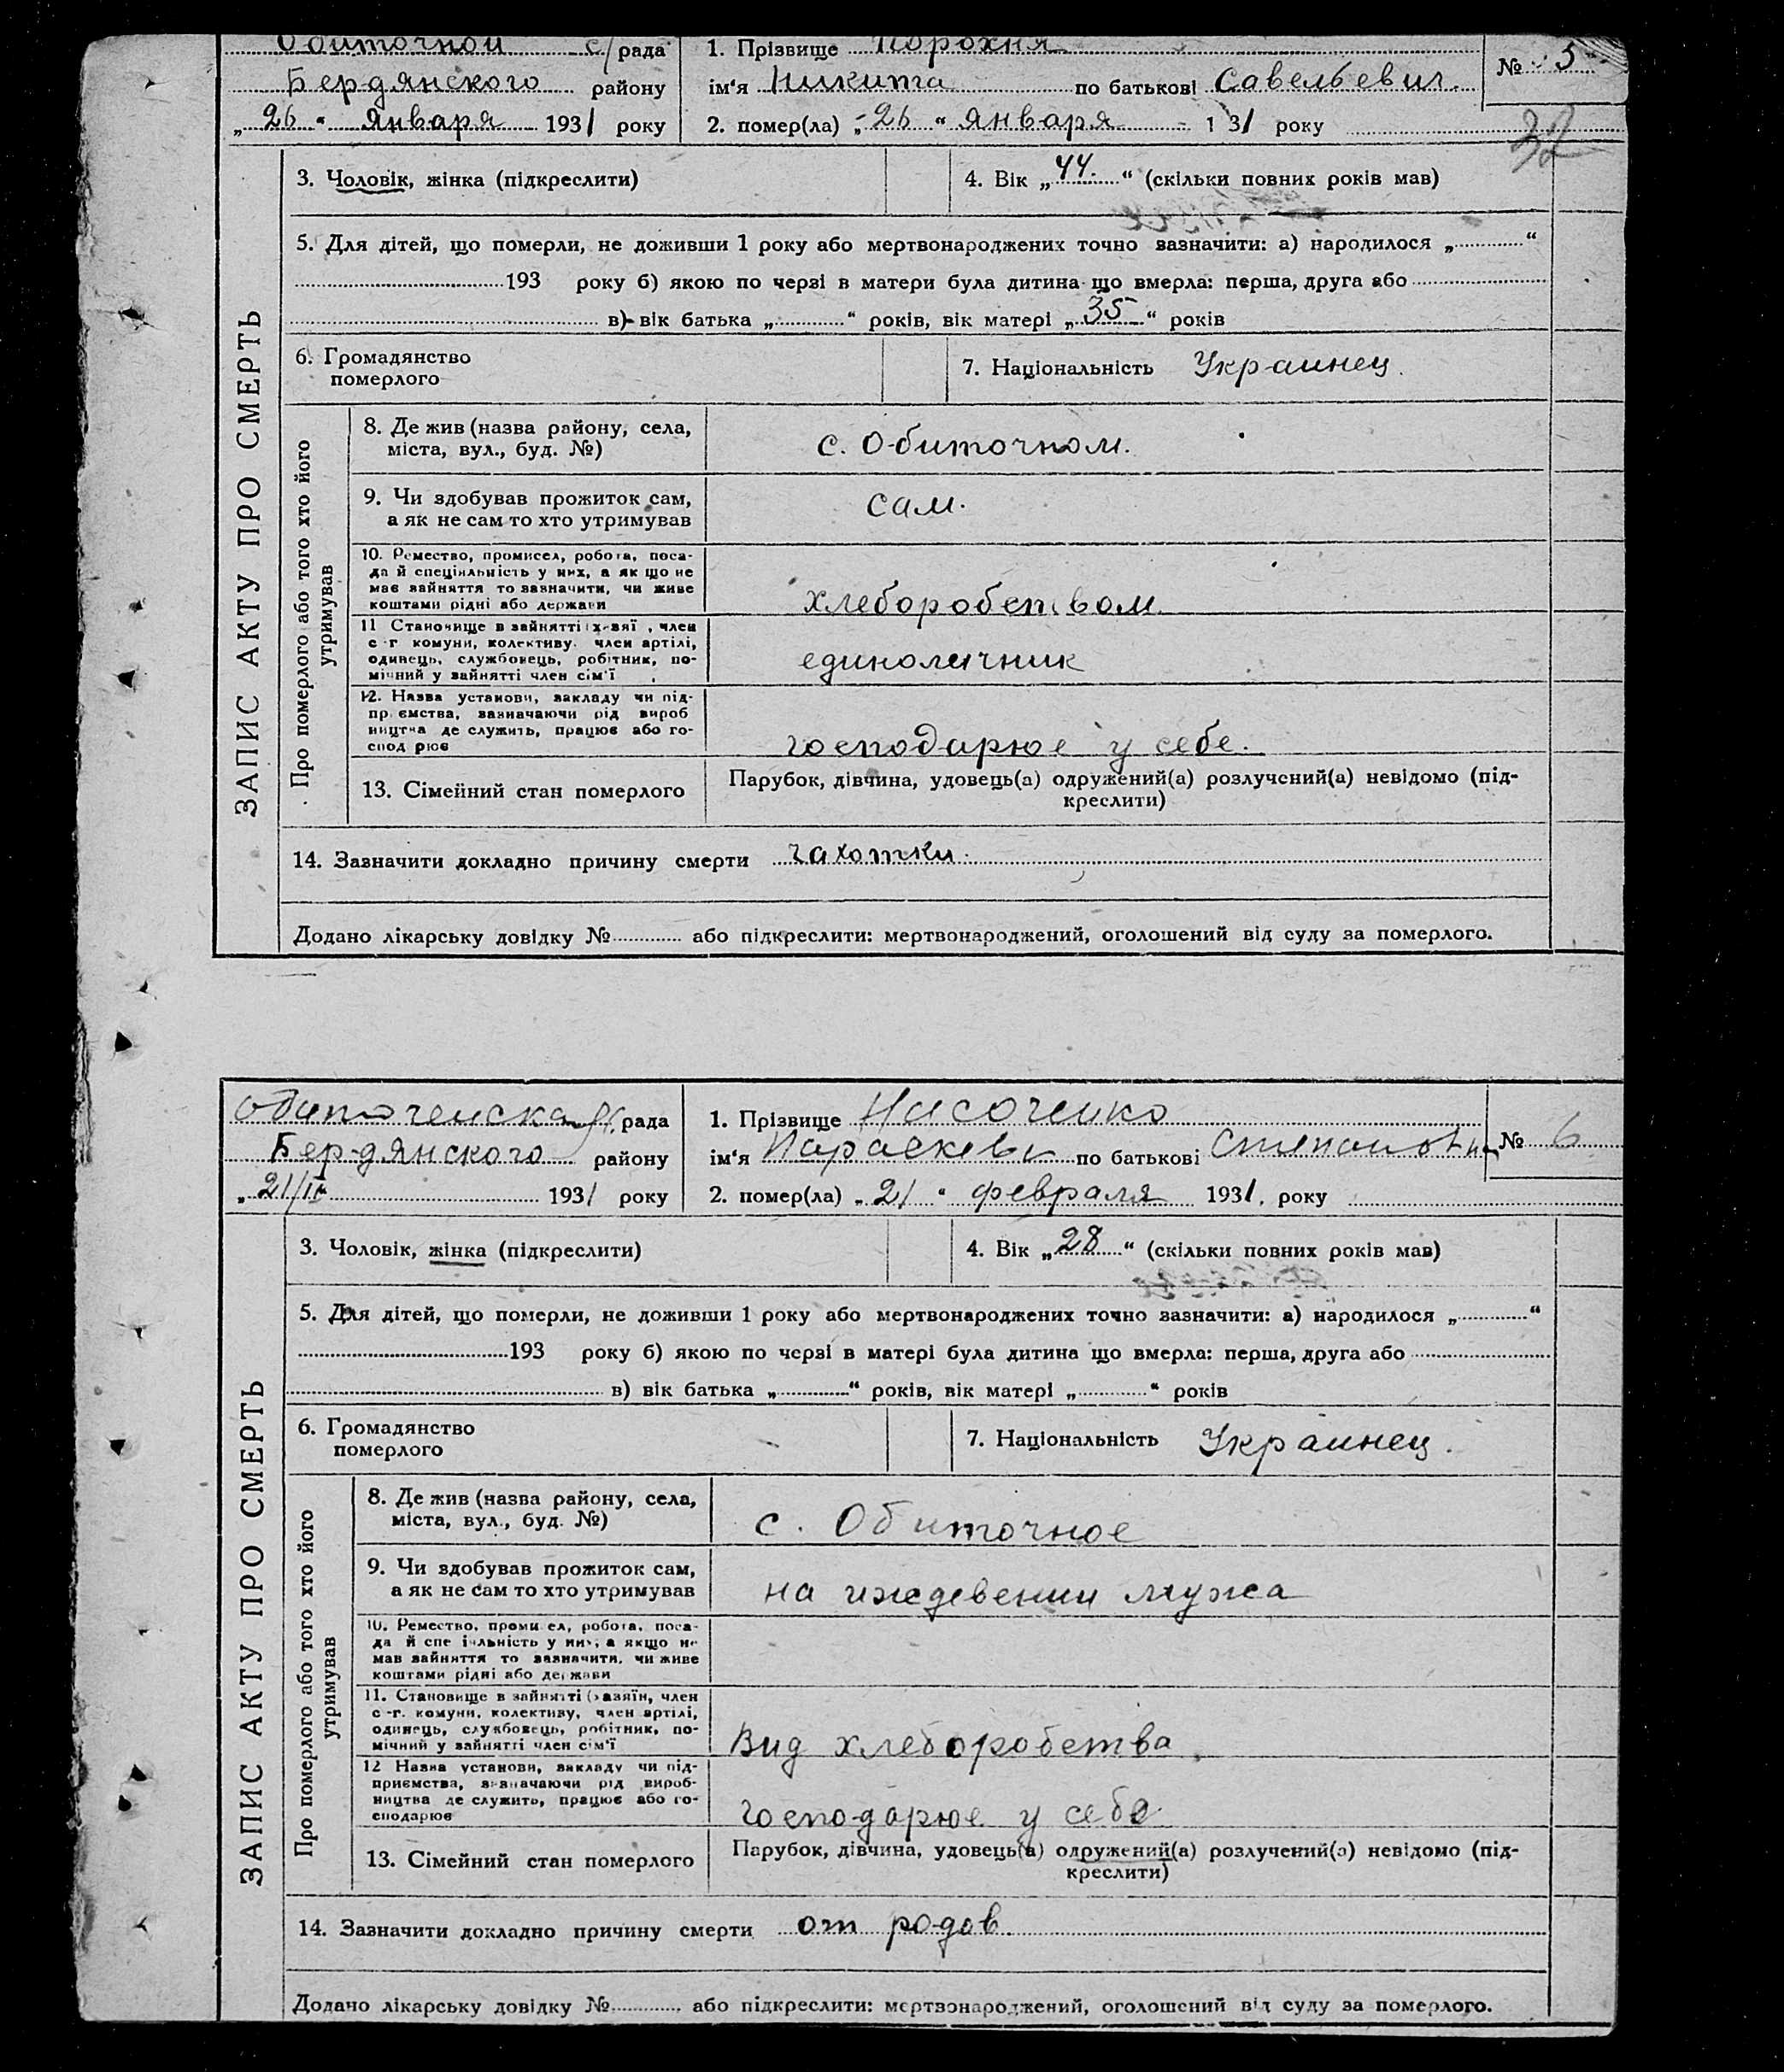 Обиточной с/рада
1. Прізвище Порохня
№ 5
Бердянского району
ім‘я Никита по батькові Савельевич
„26“ Января 1931 року
2. помер(ла) „26“ января 1 31 року
32
ЗАПИС АКТУ ПРО СМЕРТЬ
3. Чоловік, жінка (підкреслити)
4. Вік „44.“ (скільки повних років мав)
5. Для дітей, що померли, не доживши 1 року або мертвонароджених точно зазначити: а) народилося „ “
193 року б) якою по черзі в матери була дитина що вмерла: перша, друга або
в) вік батька „ “ років, вік матері „35“ років
6. Громадянство
померлого
7. Національність Украинец.
Про померлого або того хто його
утримував
8. Де жив (назва району, села,
міста, вул., буд. №)
с. Обиточном.
9. Чи здобував прожиток сам,
а як не сам то хто утримував
сам.
10. Ремество, промисел, робота, поса-
да й спеціяльність у них, а як що не
має зайняття то зазначити, чи живе
коштами рідні або держави
хлеборобством.
11 Становище в зайнятті , член
с-г комуни, колективу, член артілі,
одинець, службовець, робітник, по-
мічний у зайнятті член сім'ї
единоличник
12. Назва установи, закладу чи під-
пр ємства, зазначаючи рід вироб
ництва де служить, працює або го-
спод рює
господарює у себе.
13. Сімейний стан померлого
Парубок, дівчина, удовець(а) одружений(а) розлучений(а) невідомо (під-
креслити)
14. Зазначити докладно причину смерти чахотки.
Додано лікарську довідку № або підкреслити: мертвонароджений, оголошений від суду за померлого.
Обиточенская с/рада
1. Прізвище Насоченко
№ 6
Бердянского району
ім‘я Параскеви по батькові Степановна
„21/II 1931 року
2. помер(ла) „21“ февраля 1931. року
ЗАПИС АКТУ ПРО СМЕРТЬ
3. Чоловік, жінка (підкреслити)
4. Вік „28“ (скільки повних років мав)
5. Для дітей, що померли, не доживши 1 року або мертвонароджених точно зазначити: а) народилося „ “
193 року б) якою по черзі в матері була дитина що вмерла: перша, друга або
в) вік батька „ “ років, вік матері „ “ років
6. Громадянство
померлого
7. Національність Украинец.
Про померлого або того хто його
утримував
8. Де жив (назва району, села,
міста, вул., буд. №)
с. Обиточное
9. Чи здобував прожиток сам,
а як не сам то хто утримував
на иждевении мужа
10. Ремество, проми ел, робота, поса-
да й спе іяльність у них, а якщо не
мав зайняття то зазначити, чи живе
коштами рідні або держави
11. Становище в зайнятті (хазяїн, член
с-г. комуни, колективу, член артілі,
одинець, службовець, робітник, по-
мічний у зайнятті член сім'ї
Вид хлеборобства.
12 Назва установи, закладу чи під-
приємства, зазначаючи рід вироб-
ництва де служить, працює або го-
сподарює
господарює у себе
13. Сімейний стан померлого
Парубок, дівчина, удовець(а) одружений(а) розлучений(а) невідомо (під-
креслити)
14. Зазначити докладно причину смерти от родов.
Додано лікарську довідку № або підкреслити: мертвонароджений, оголошений від суду за померлого.